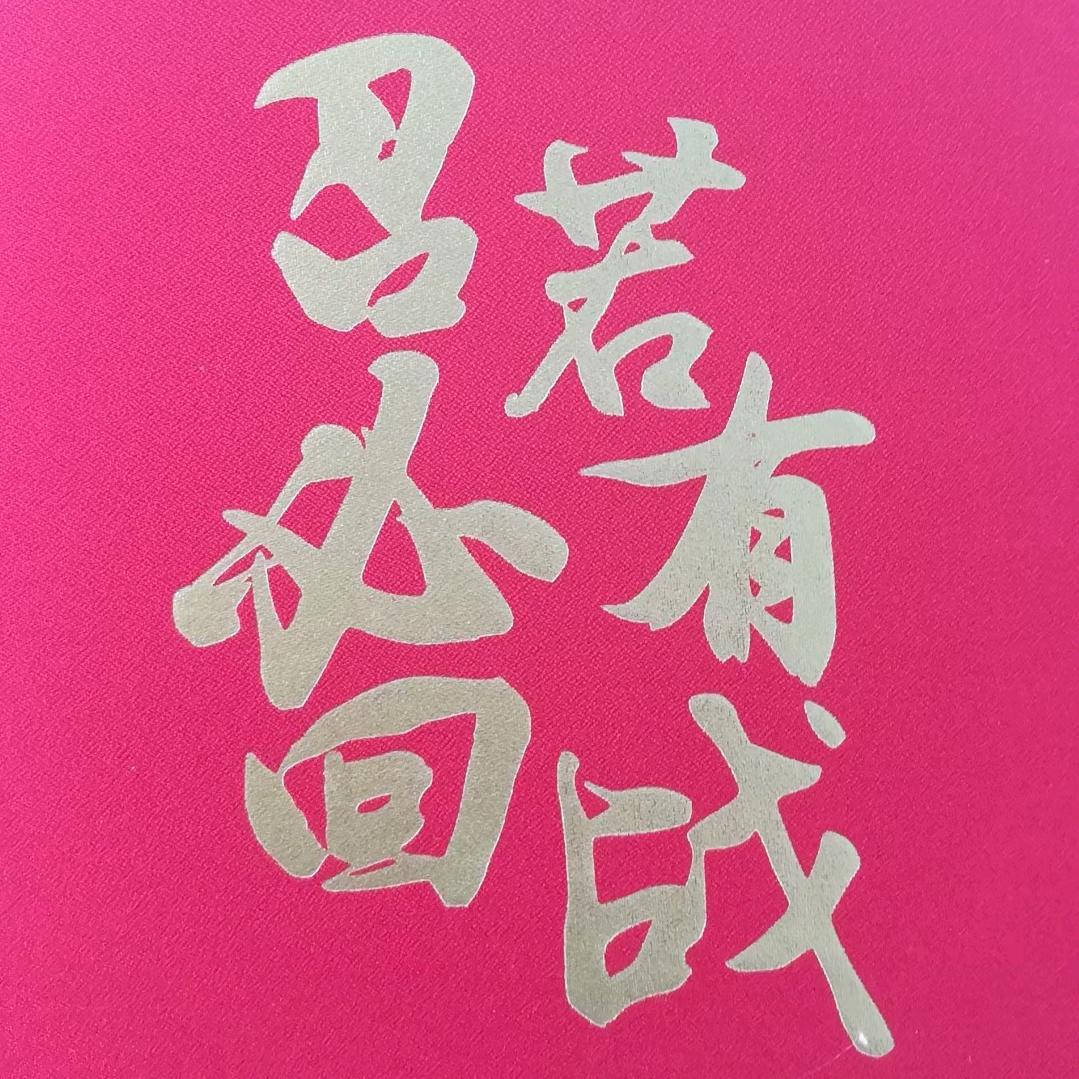 若有战
召必回